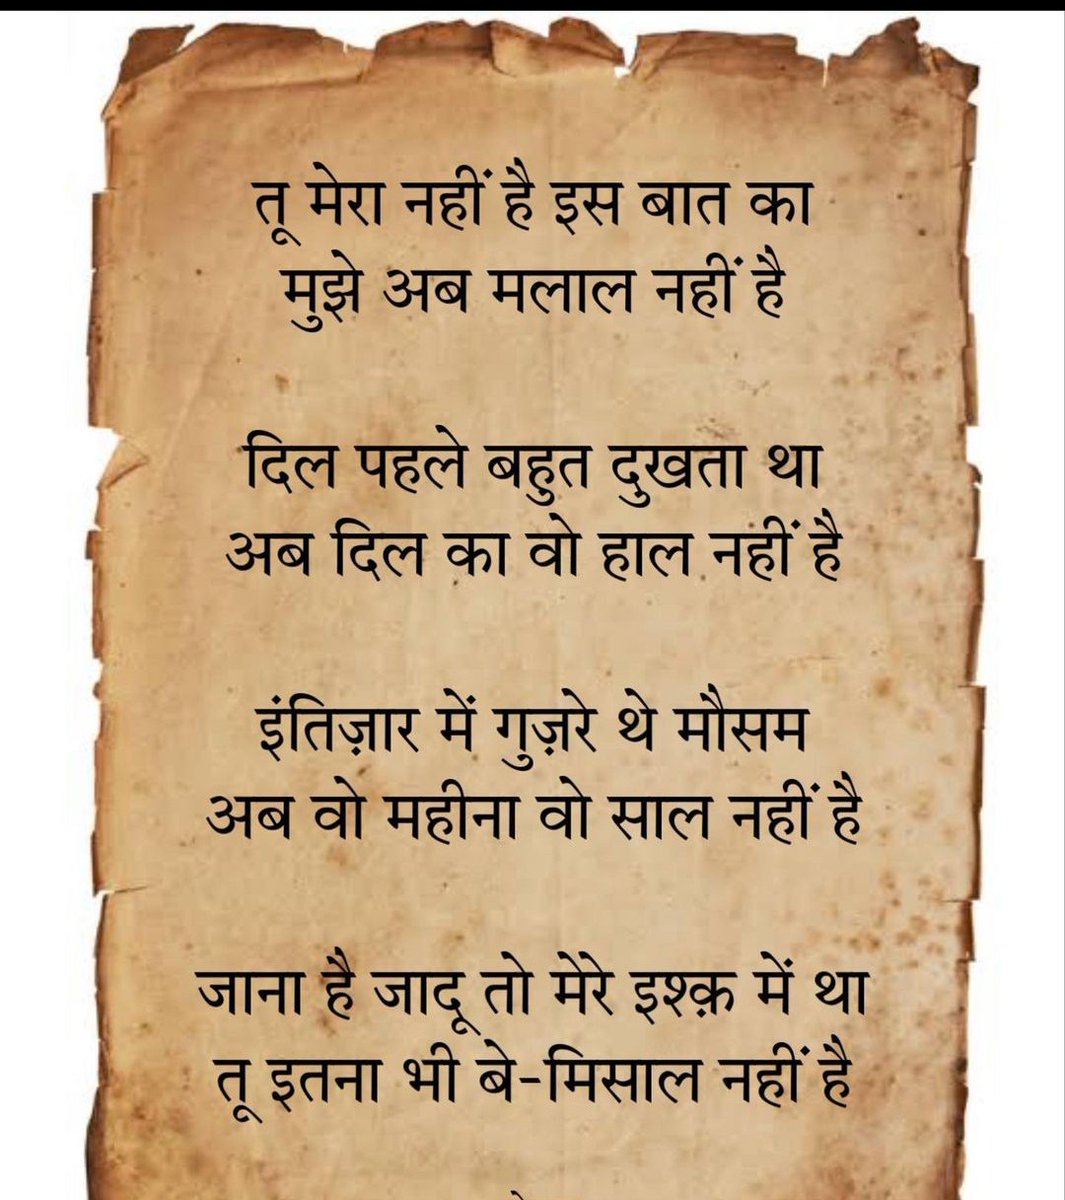 तू मेरा नहीं है इस बात का
मुझे अब मलाल नहीं है
दिल पहले बहुत दुखता था
अब दिल का वो हाल नहीं है
इंतिज़ार में गुज़रे थे मौसम
अब वो महीना वो साल नहीं है
जाना है जादू तो मेरे इश्क़ में था
तू इतना भी बे-मिसाल नहीं है